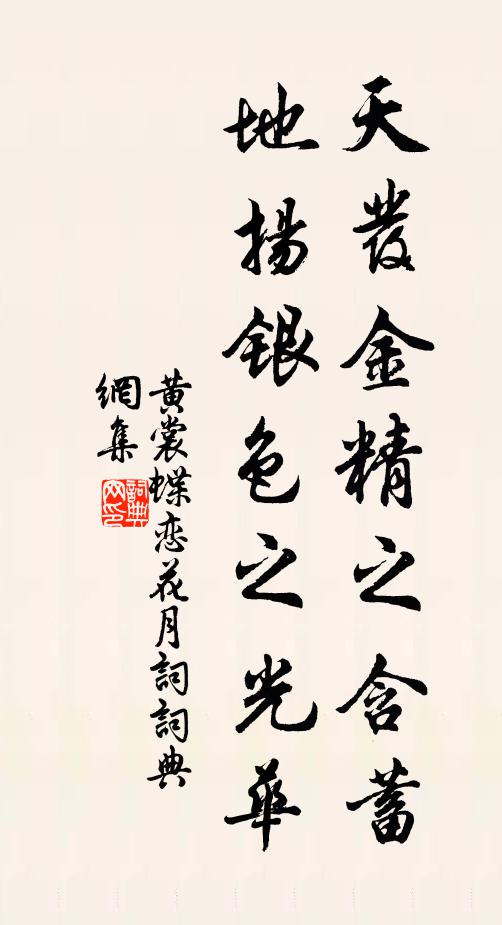 天發金精之含蓄
地揚銀色之光華
黃裳蝶恋花月詞詞典
網集
詞典
网印